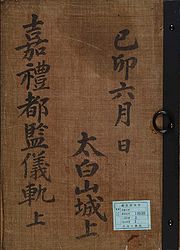 己卯六月 日
太白山城上
嘉禮都監儀軌 上